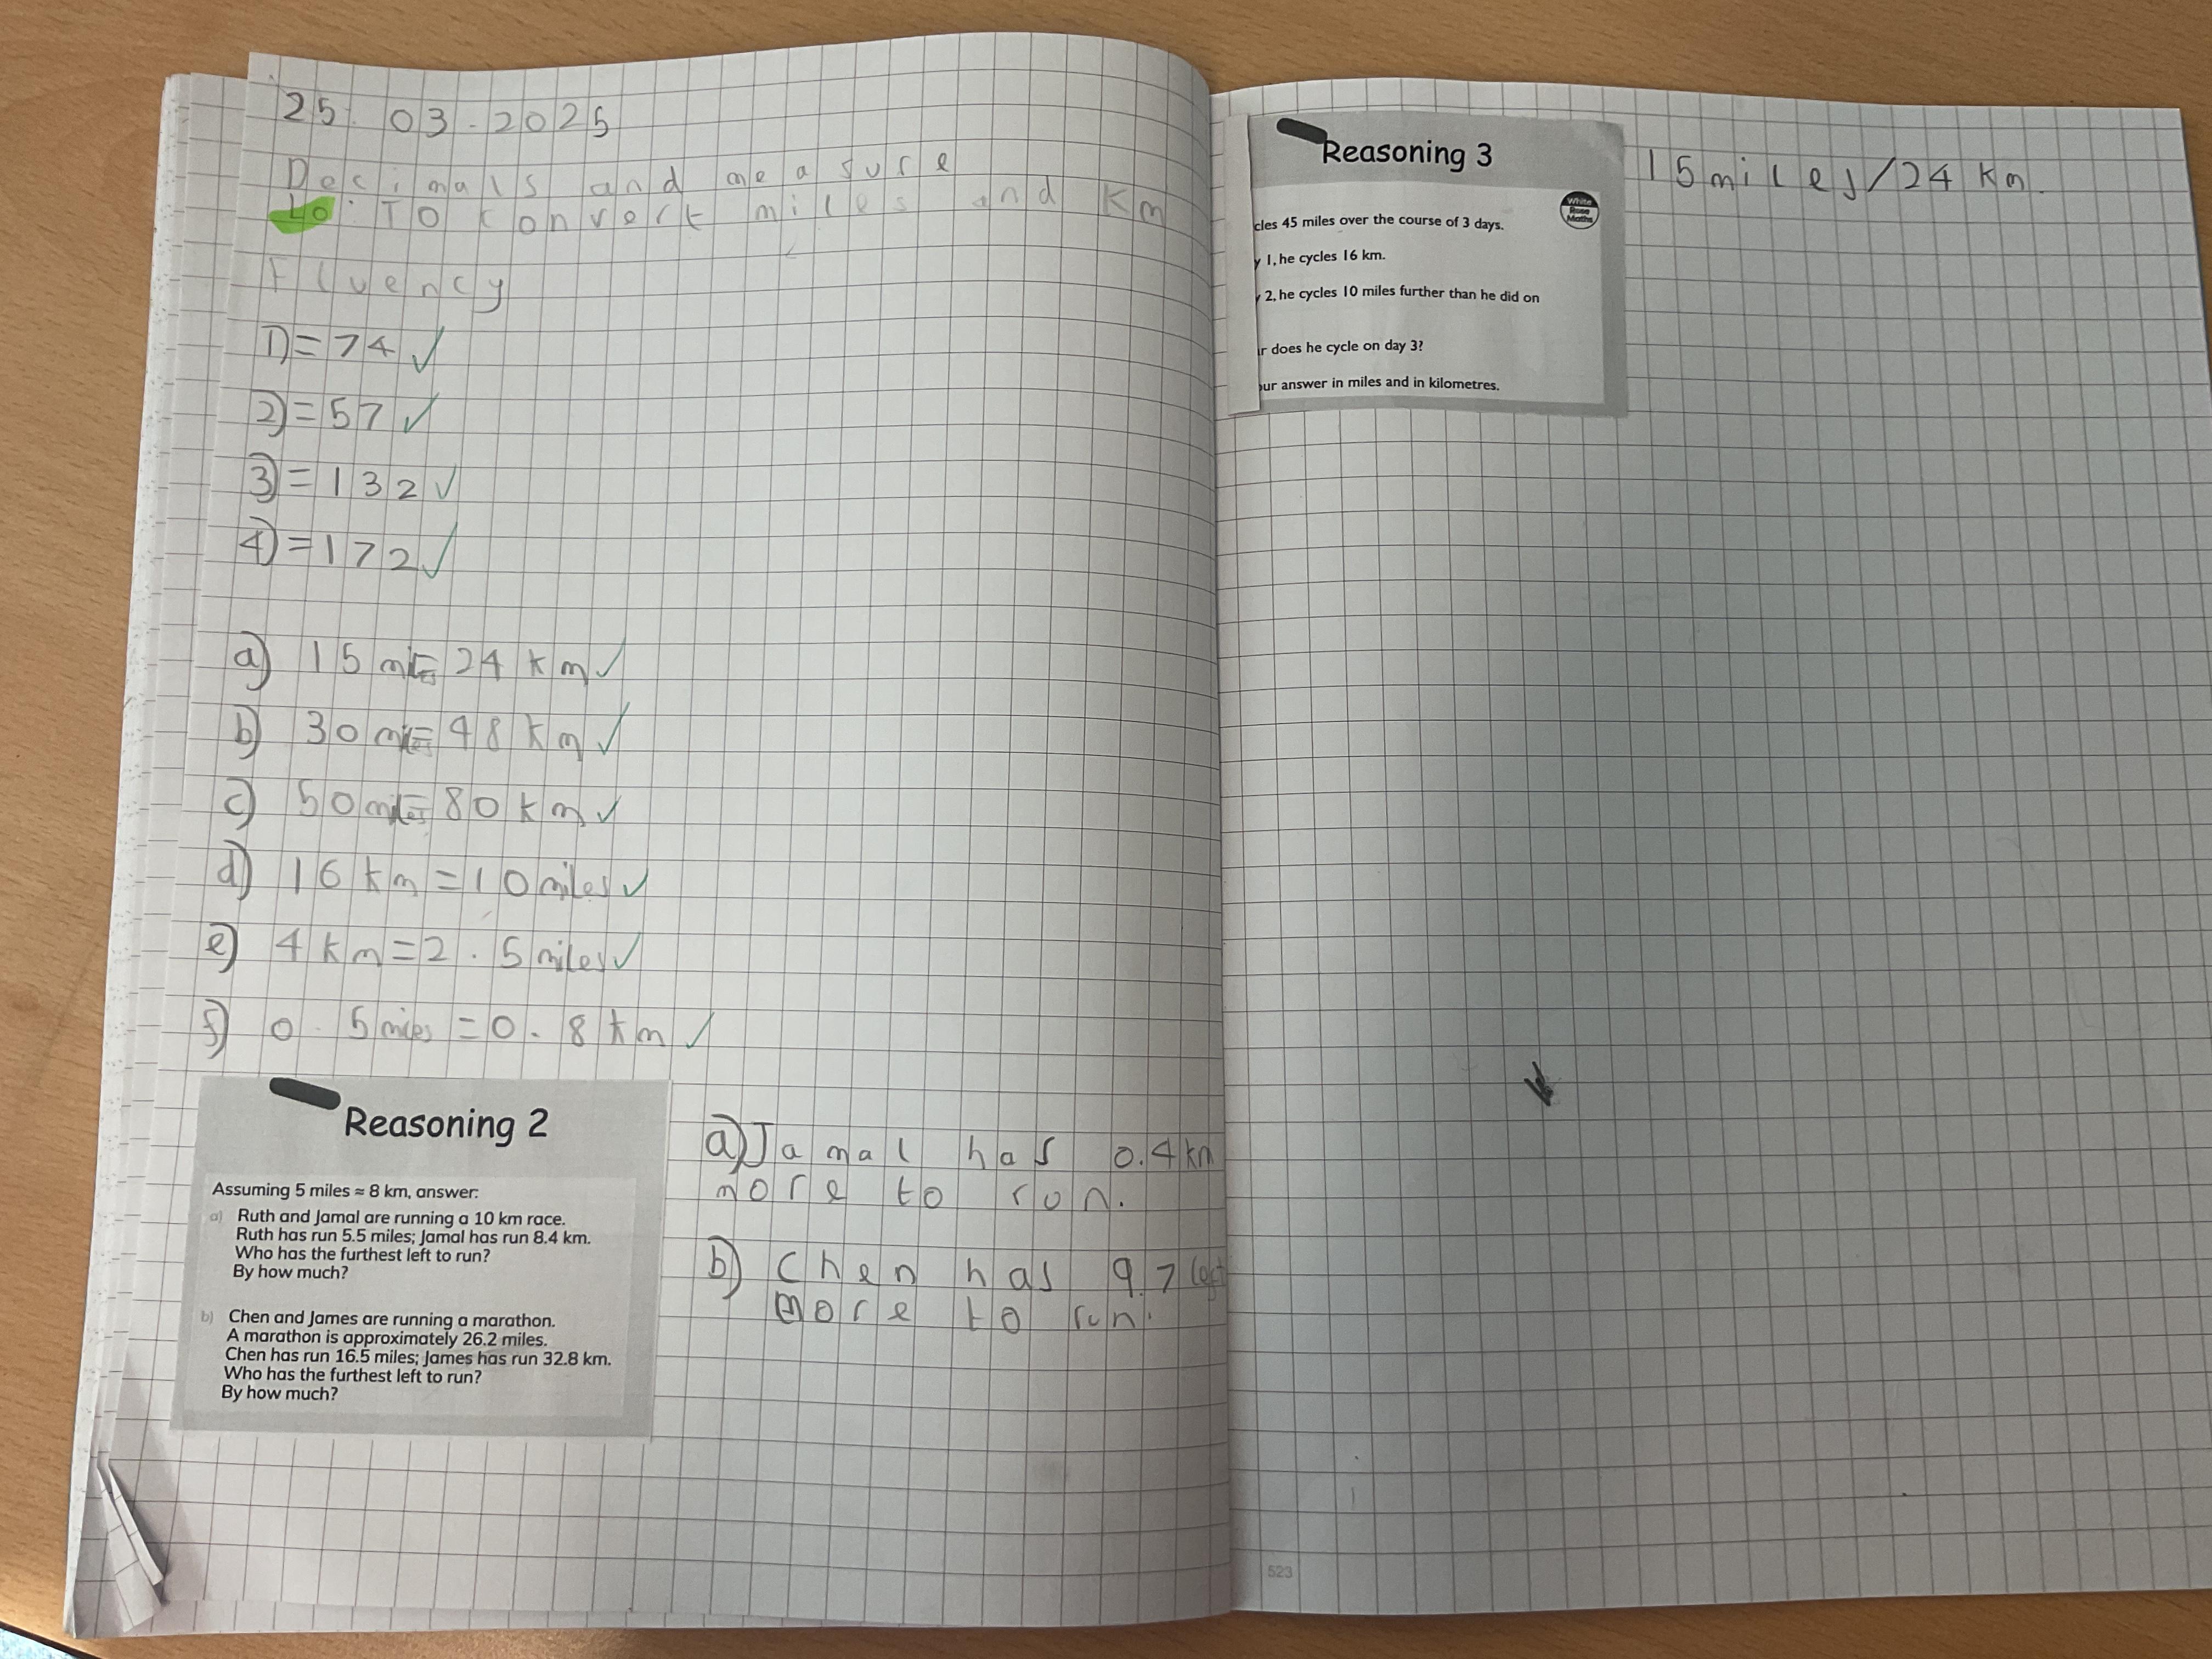 25.03.2025
Decimals and measure
LO: TO convert miles and Km
Fluency
1)=74✓
2)=57✓
3)=132✓
4)=172✓
a) 15 miles=24 km✓
b) 30 miles=48 km✓
c) 50 miles=80 km✓
d) 16 km=10 miles✓
e) 4 km=2.5 miles✓
f) 0.5 miles=0.8 km✓
Reasoning 2
Assuming 5 miles ≈ 8 km, answer:
a) Ruth and Jamal are running a 10 km race.
Ruth has run 5.5 miles; Jamal has run 8.4 km.
Who has the furthest left to run?
By how much?
b) Chen and James are running a marathon.
A marathon is approximately 26.2 miles.
Chen has run 16.5 miles; James has run 32.8 km.
Who has the furthest left to run?
By how much?
a) Jamal has 0.4 km
more to run.
b) Chen has 9.7 left
more to run.
Reasoning 3
White
Rose
Maths
cles 45 miles over the course of 3 days.
y 1, he cycles 16 km.
2, he cycles 10 miles further than he did on
r does he cycle on day 3?
our answer in miles and in kilometres.
15 miles/24 km.
523